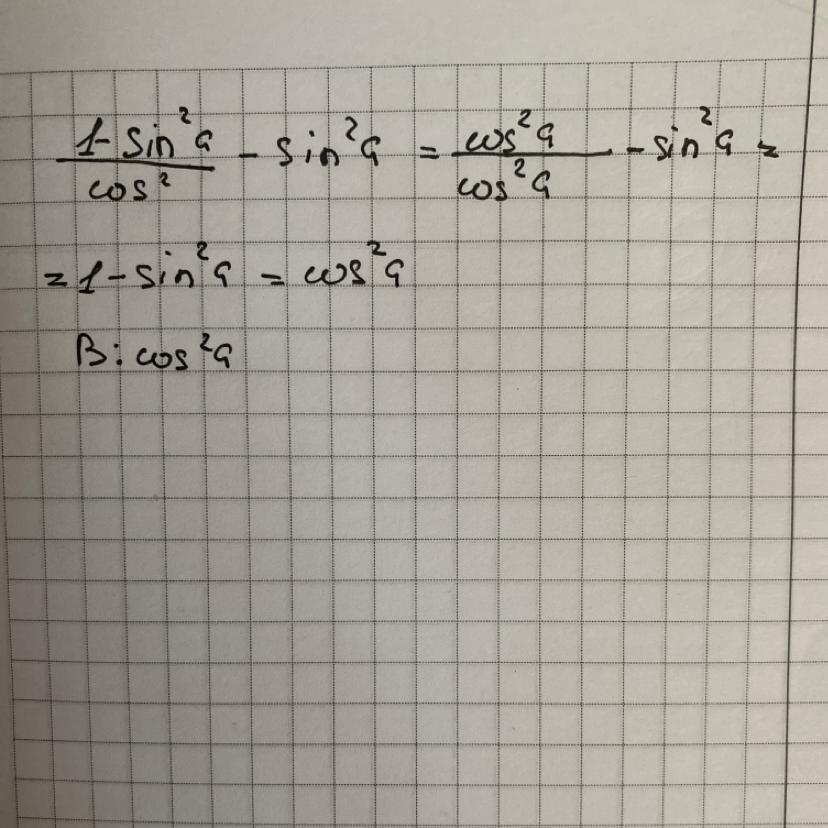 (1-sin²a)/(cos²) - sin²a = (cos²a)/(cos²a) - sin²a =
= 1-sin²a = cos²a
В: cos²a